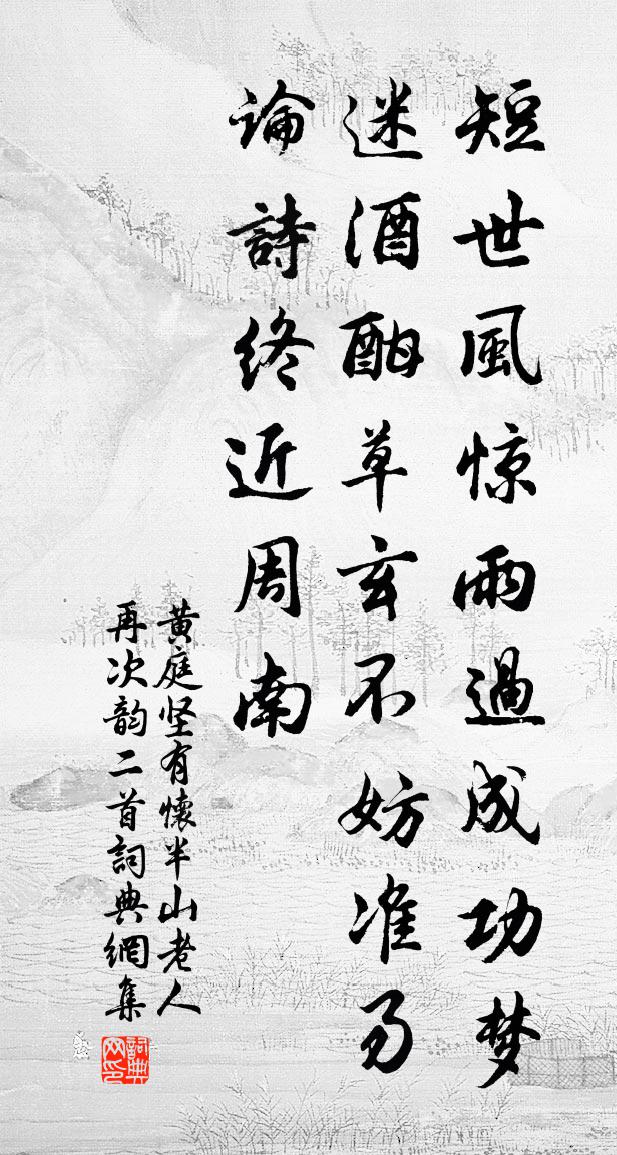 短世風惊雨過成功梦
迷酒酣草玄不妨准易
論詩終近周南
黄庭坚有懷半山老人
再次韵二首詞典網集
詞典网印